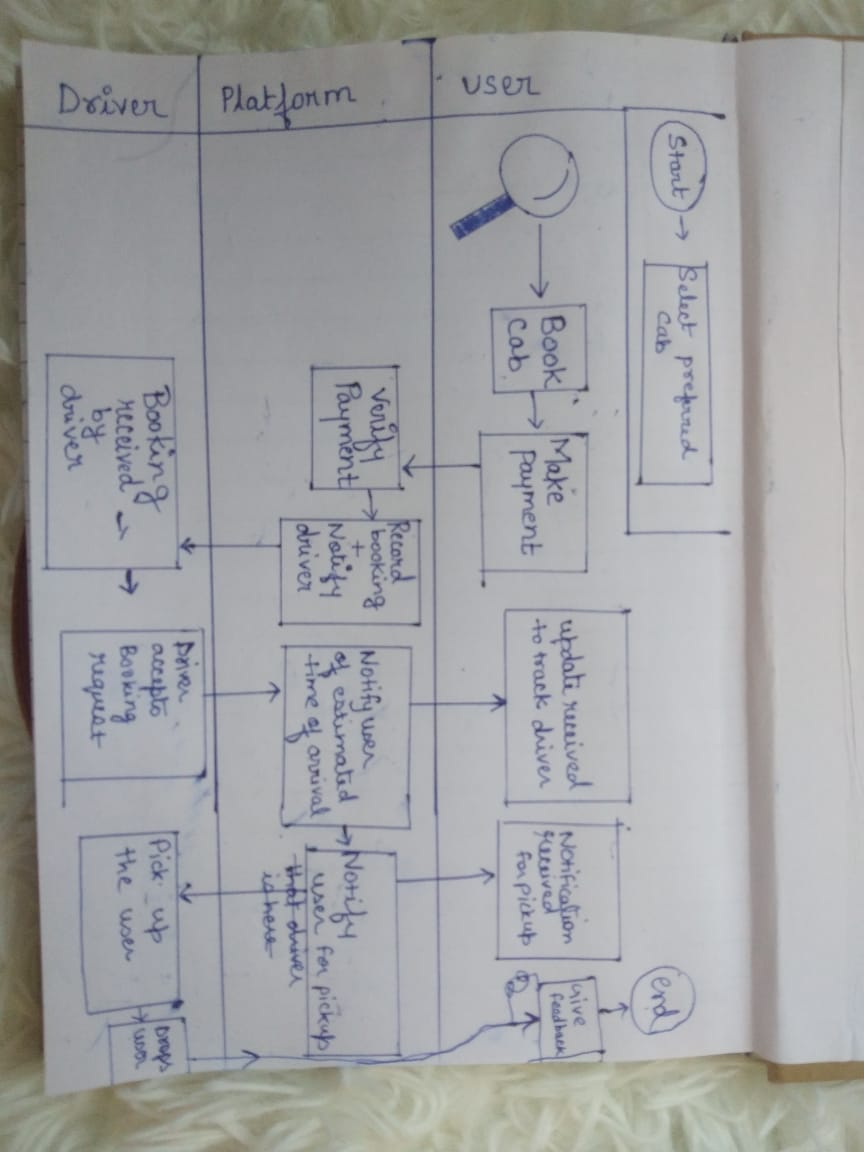 Start
Select preferred
cab
end
User
Book
cab
Make
payment
update received
to track driver
Notification
received
for pickup
Give
feedback
Platform
Verify
Payment
Record
booking
+
Notify
driver
Notify user
of estimated
time of arrival
Notify
user for pickup
that driver
is here
Driver
Booking
received
by
driver
Driver
accepts
Booking
request
Pick up
the user
Drops
user